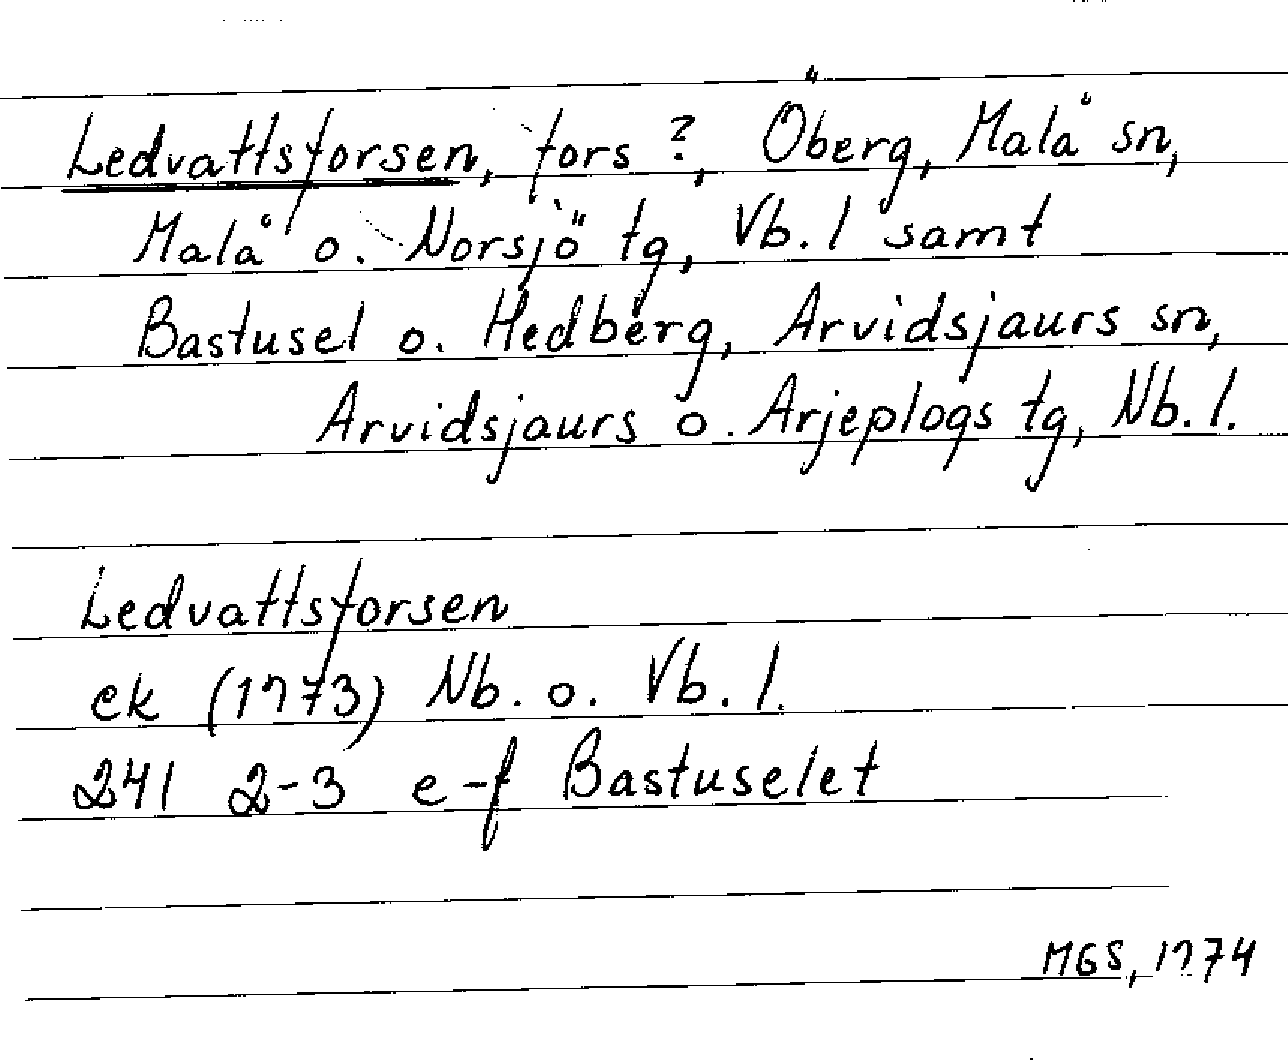 Ledvattsforsen, fors ?, Öberg, Malå sn,
Malå o. Norsjö tg, Vb. l samt
Bastusel o. Hedberg, Arvidsjaurs sn,
Arvidsjaurs o. Arjeplogs tg, Nb. l.
Ledvattsforsen
ek (1973) Nb. o. Vb. l.
241 2-3 e-f Bastuselet
MGS, 1974